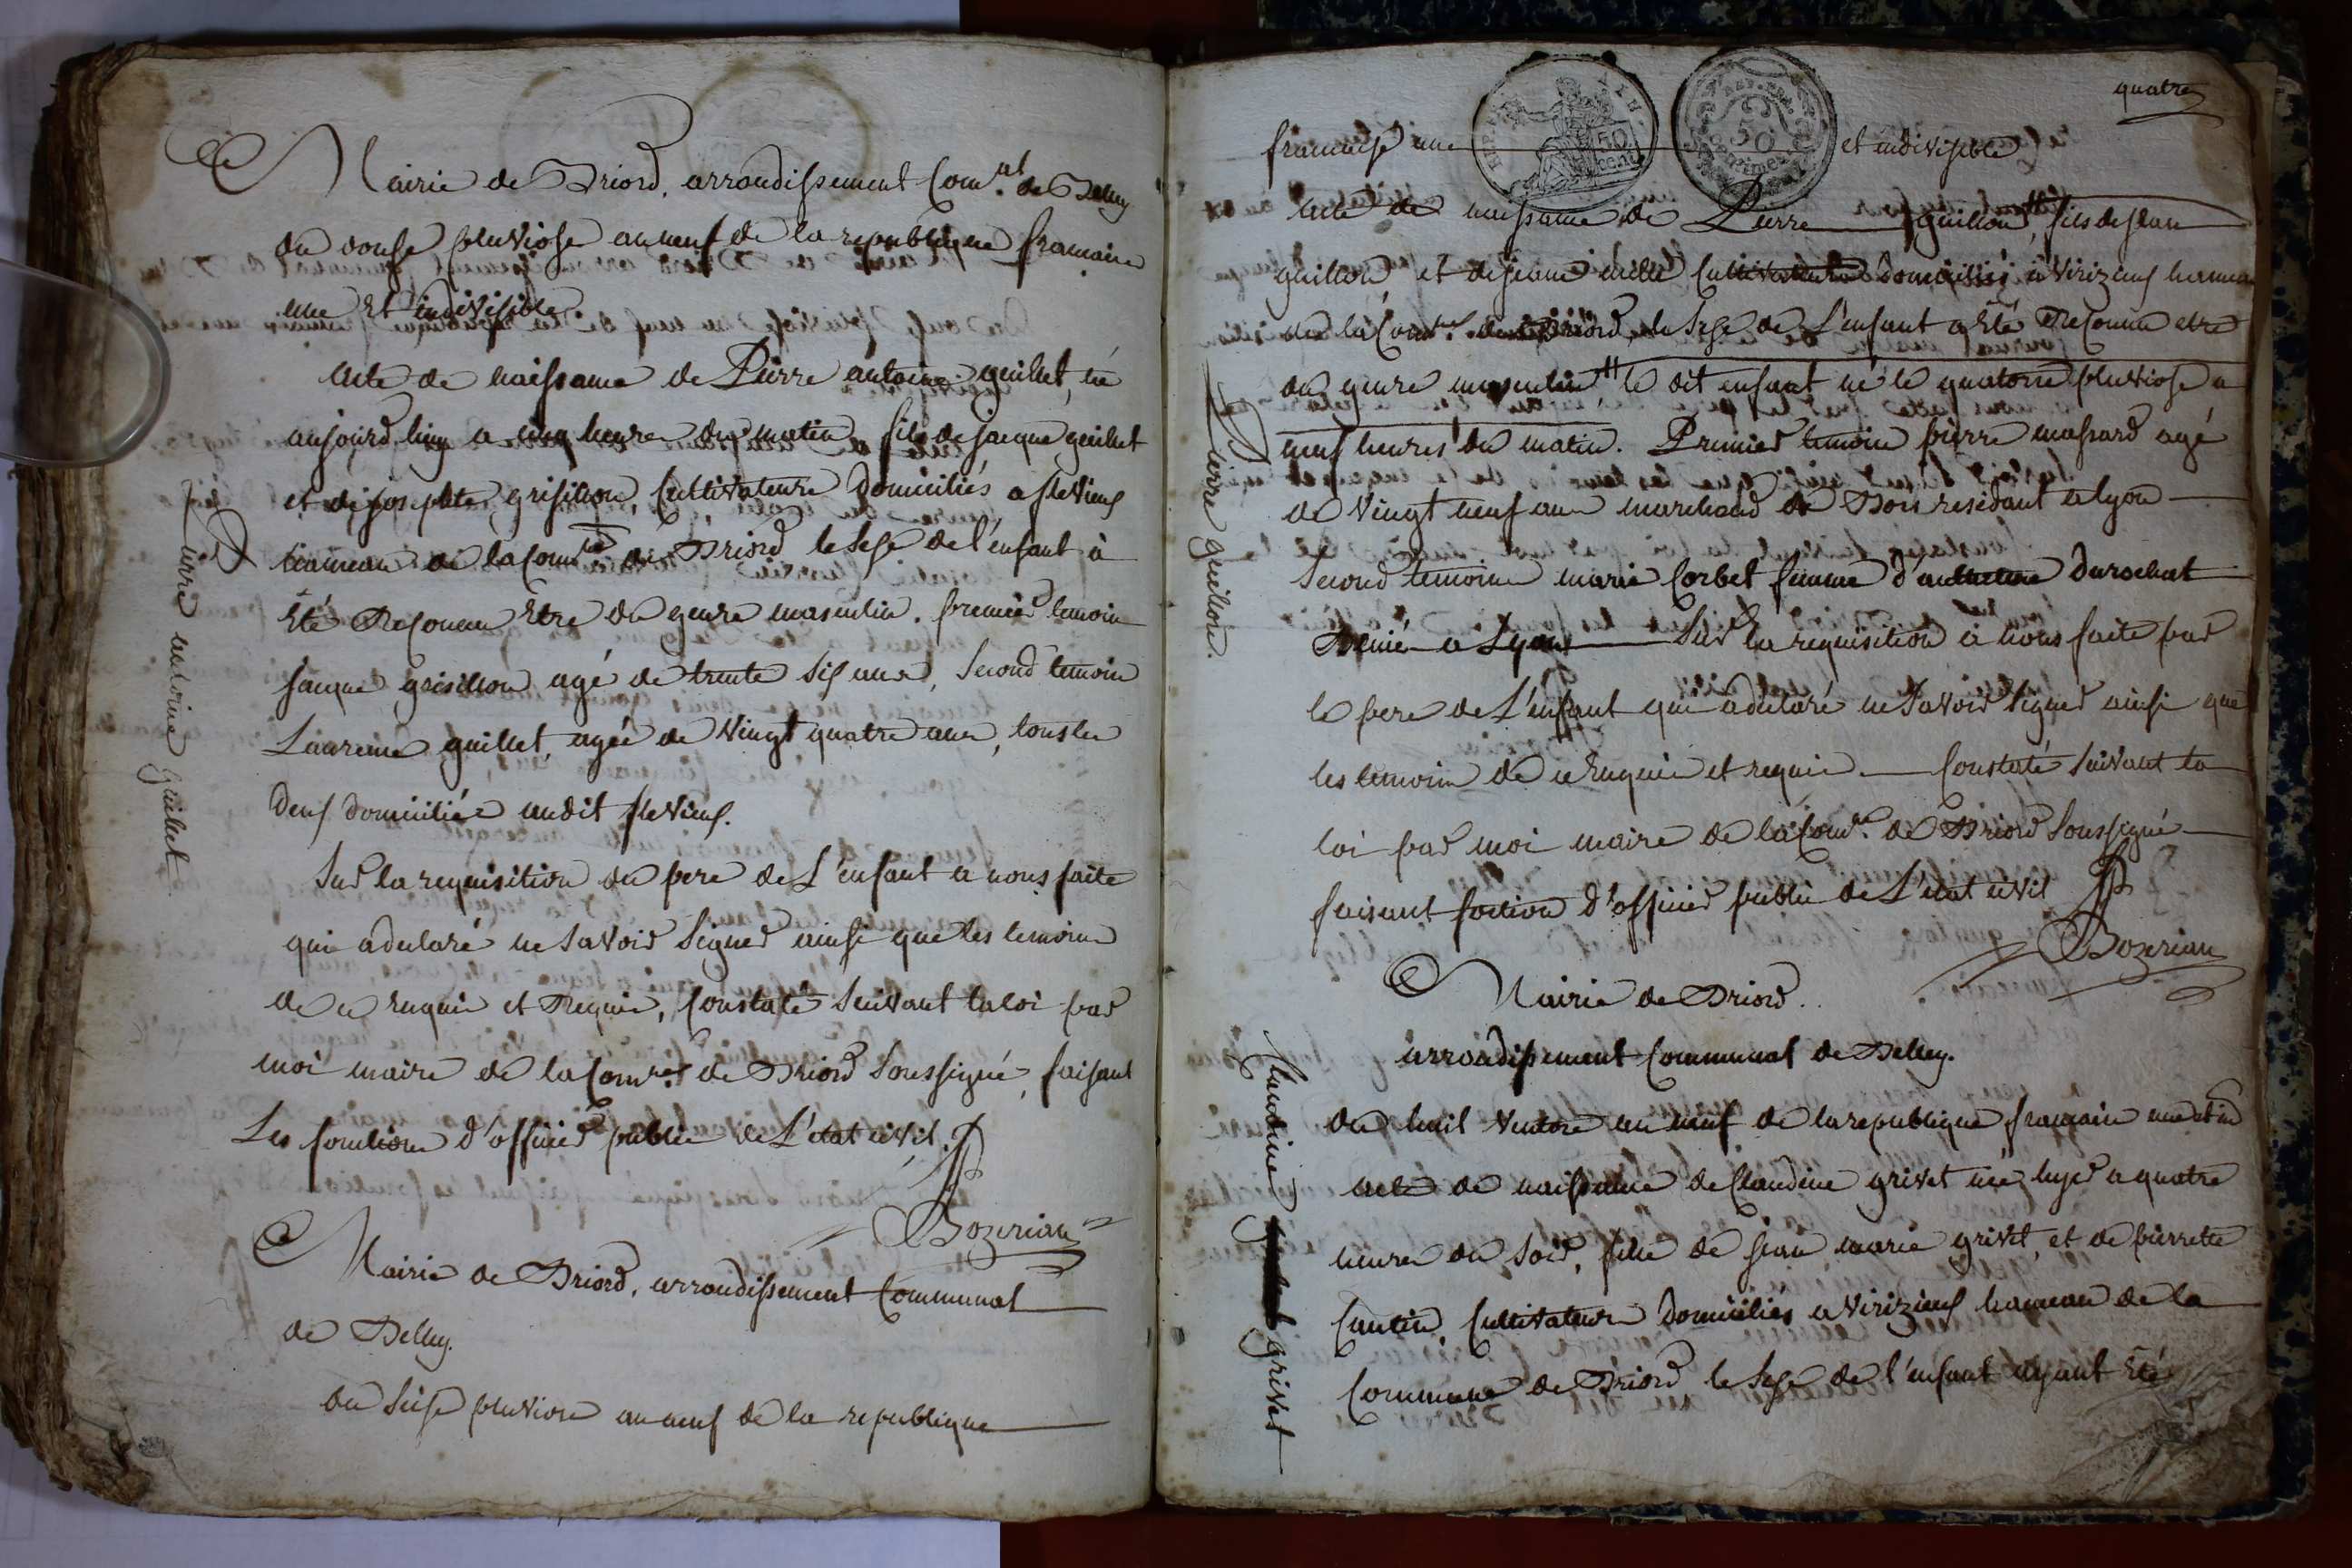 Mairie de Briord, arrondissement Com.al de Belley
du douse pluviose an neuf de la republique francaise
une et indivisible
acte de naissance de Pierre antoine guillet, né
aujourd'huy a cinq heures du matin fils de jacque guillet
et de josephte grisillon, Cultivateurs domiciliés a
hameau de la Comne de Briord le sexe de l'enfant à
été Reconnu Etre du genre masculin. premier temoin
jacque grisillon agé de trente six ans, Second temoin
Laurence guillet, agée de vingt quatre ans, tous les
deux domiciliés audit
Sur la requisition du pere de L'enfant a nous faite
qui a declaré ne Savoir Signer ainsi que les temoins
de ce enquis et Requis, Constaté Suivant la loi par
moi maire de la Comne de Briord Soussigné, faisant
Les fonctions d'officier public de L'etat civil
Bozerian
Mairie de Briord, arrondissement Communal
de Belley.
du Seise pluviose an neuf de la republique
Pierre antoine guillet
quatre
francaise une et indivisible
50 cent
REP. FRA.
50
centimes
acte de naissance de Pierre guillon, fils de jean
guillon et de jeanne Cultivateurs domiciliés à Virizieux hameau
de la Comne de Briord, le Sexe de L'enfant a Eté Reconnu etre
du genre masculin, le dit enfant né le quatorze pluviose a
neuf heures du matin. Premier temoin pierre massard agé
de vingt neuf ans marchand de Bois residant a lyon
Second temoin marie Corbet femme d'anthelme Durochat
a Lyon Sur la requisition à nous faite par
le pere de L'enfant qui a declaré ne Savoir Signer ainsi que
les temoins de ce enquis et requis. Constaté Suivant la
loi par moi maire de la Comne de Briord Soussigné
faisant fonction d'officier public de L'etat civil
Bozerian
Pierre guillon.
Mairie de Briord.
arrondissement Communal de Belley.
du huit Ventose an neuf de la republique francaise une et ind
acte de naissance de Claudine grivet née hyer a quatre
heures du Soir, fille de jean marie grivet, et de pierrette
Cultivateurs domiciliés a Virizieux hameau de la
Commune de Briord le Sexe de l'enfant ayant Eté
Claudine grivet